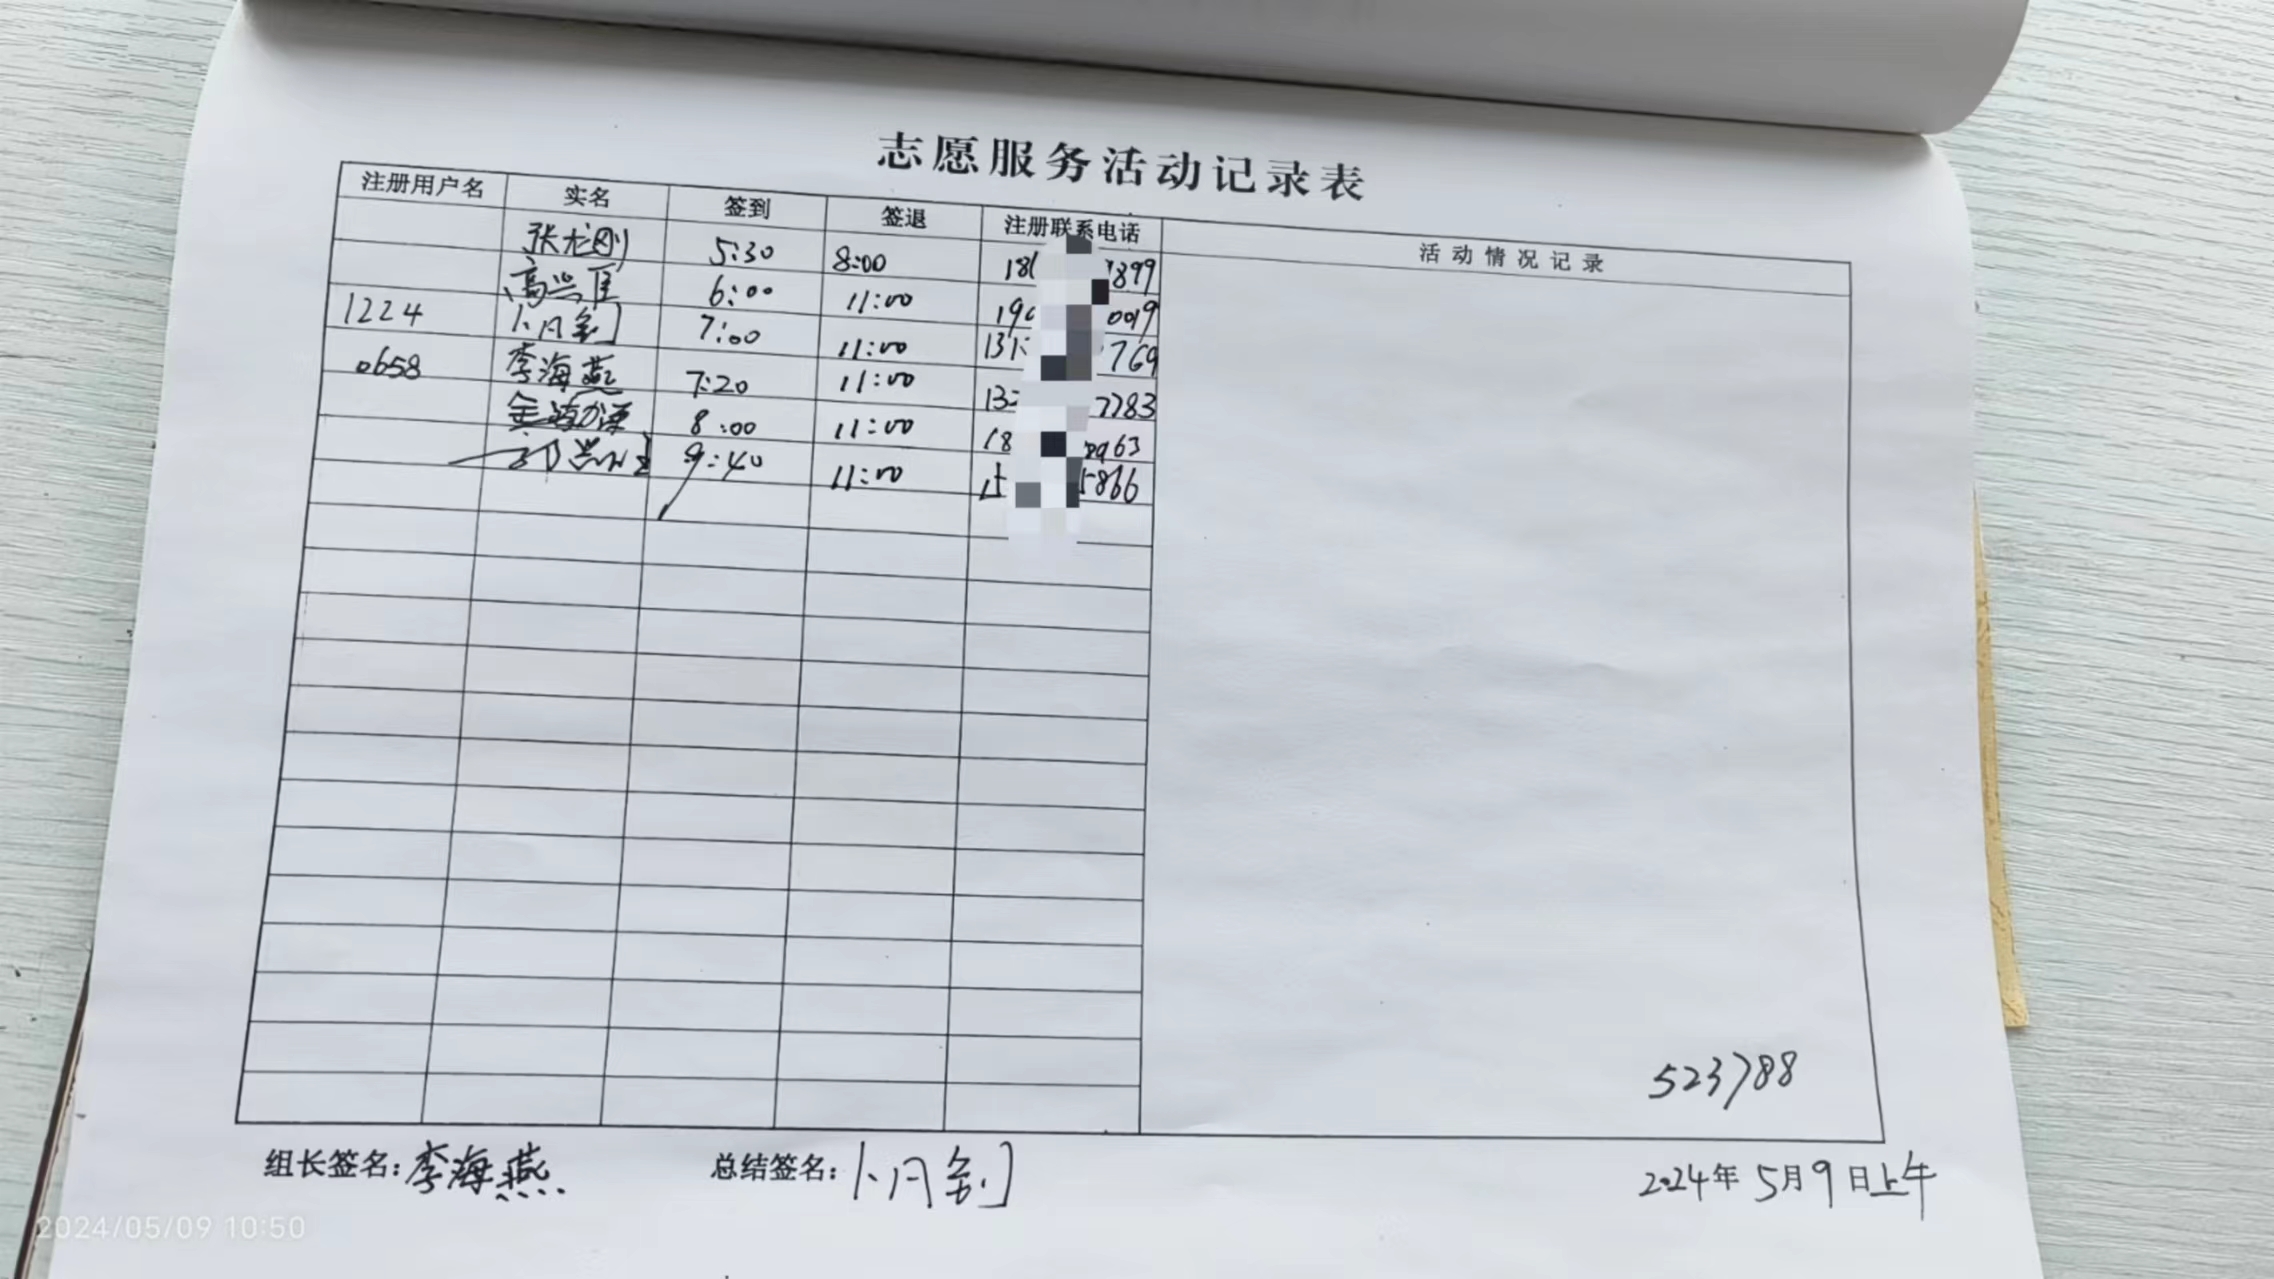 志愿服务活动记录表
注册用户名 实名 签到 签退 注册联系电话 活动情况记录
张龙刚 5:30 8:00 18 899
高兴 6:00 11:00 19 0019
1224 卜月钊 7:00 11:00 131 769
0658 李海燕 7:20 11:00 13 7783
金 8:00 11:00 18 8963
9:40 11:00 5866
523788
组长签名:李海燕 总结签名:卜月钊 2024年5月9日上午
2024/05/09 10:50